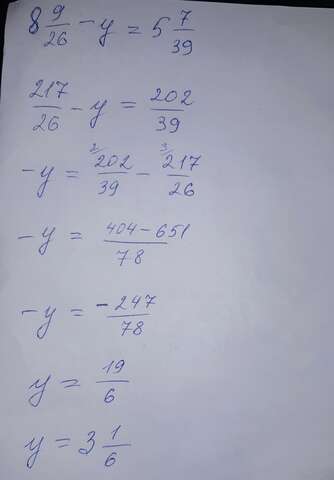 8 9/26 - y = 5 7/39
217/26 - y = 202/39
-y = 2/ 202/39 - 3/ 217/26
-y = 404-651/78
-y = -247/78
y = 19/6
y = 3 1/6